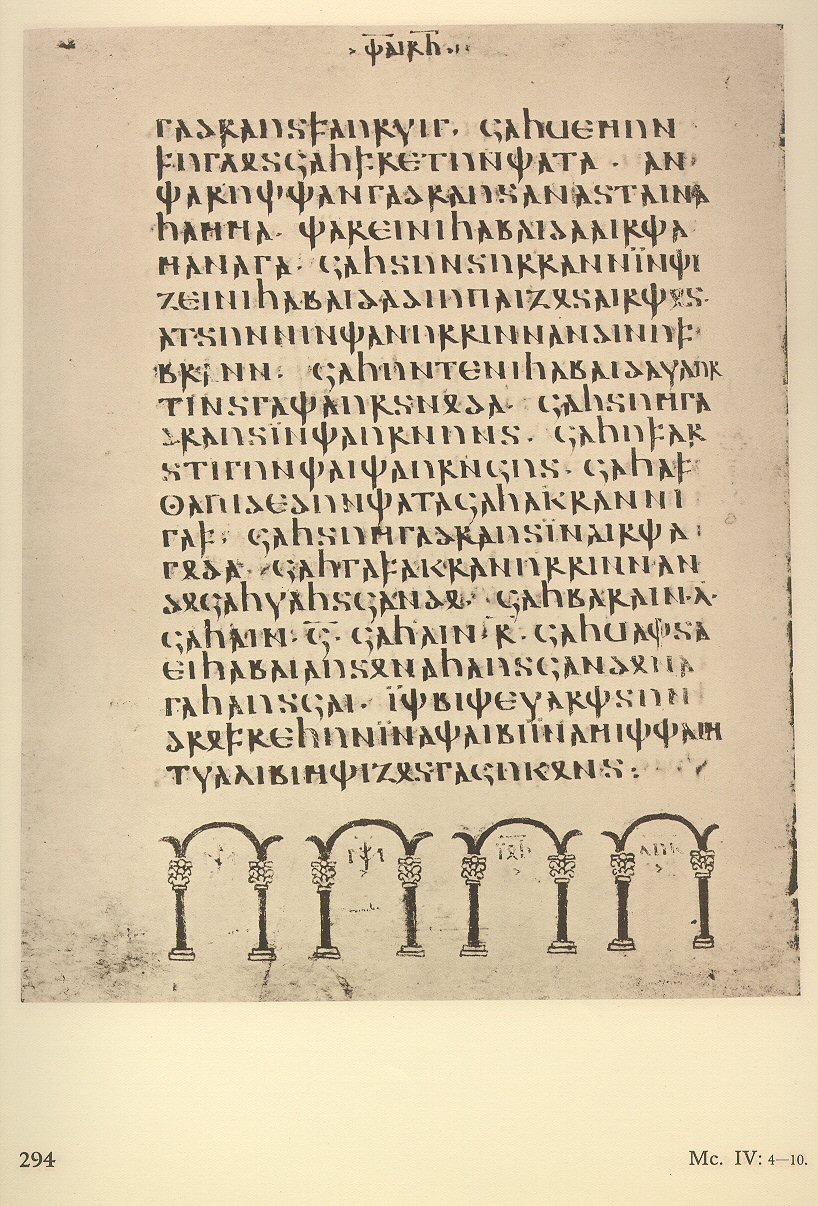 𐌸𐌰𐌹𐍂𐌷
𐌲𐌰𐌳𐍂𐌰𐌿𐍃𐍆𐌰𐌿𐍂𐍅𐌹𐌲· 𐌾𐌰𐌷𐌵𐌴𐌼𐌿𐌽
𐍆𐌿𐌲𐌻𐍉𐍃𐌾𐌰𐌷𐍆𐍂𐌴𐍄𐌿𐌽𐌸𐌰𐍄𐌰· 𐌰𐌽
𐌸𐌰𐍂𐌿𐌸𐌸𐌰𐌽𐌲𐌰𐌳𐍂𐌰𐌿𐍃𐌰𐌽𐌰𐍃𐍄𐌰𐌹𐌽𐌰
𐌷𐌰𐌼𐌼𐌰· 𐌸𐌰𐍂𐌴𐌹𐌽𐌹𐌷𐌰𐌱𐌰𐌹𐌳𐌰𐌰𐌹𐍂𐌸𐌰
𐌼𐌰𐌽𐌰𐌲𐌰· 𐌾𐌰𐌷𐍃𐌿𐌽𐍃𐌿𐍂𐍂𐌰𐌽𐌽𐌹̈𐌽𐌸𐌹
𐌶𐌴𐌹𐌽𐌹𐌷𐌰𐌱𐌰𐌹𐌳𐌰𐌳𐌹𐌿𐍀𐌰𐌹𐌶𐍉𐍃𐌰𐌹𐍂𐌸𐍉𐍃·
𐌰𐍄𐍃𐌿𐌽𐌽𐌹𐌽𐌸𐌰𐌽𐌿𐍂𐍂𐌹𐌽𐌽𐌰𐌽𐌳𐌹𐌽𐌿𐍆
𐌱𐍂𐌰𐌽𐌽· 𐌾𐌰𐌷𐌿𐌽𐍄𐌴𐌽𐌹𐌷𐌰𐌱𐌰𐌹𐌳𐌰𐍅𐌰𐌿𐍂
𐍄𐌹𐌽𐍃𐌲𐌰𐌸𐌰𐌿𐍂𐍃𐌽𐍉𐌳𐌰· 𐌾𐌰𐌷𐍃𐌿𐌼𐌲𐌰
𐌳𐍂𐌰𐌿𐍃𐌹̈𐌽𐌸𐌰𐌿𐍂𐌽𐌿𐌽𐍃· 𐌾𐌰𐌷𐌿𐍆𐌰𐍂
𐍃𐍄𐌹𐌲𐌿𐌽𐌸𐌰𐌹𐌸𐌰𐌿𐍂𐌽𐌾𐌿𐍃· 𐌾𐌰𐌷𐌰𐍆
𐍈𐌰𐍀𐌹𐌳𐌴𐌳𐌿𐌽𐌸𐌰𐍄𐌰𐌾𐌰𐌷𐌰𐌺𐍂𐌰𐌽𐌽𐌹
𐌲𐌰𐍆· 𐌾𐌰𐌷𐍃𐌿𐌼𐌲𐌰𐌳𐍂𐌰𐌿𐍃𐌹̈𐌽𐌰𐌹𐍂𐌸𐌰
𐌲𐍉𐌳𐌰· 𐌾𐌰𐌷𐌲𐌰𐍆𐌰𐌺𐍂𐌰𐌽𐌿𐍂𐍂𐌹𐌽𐌽𐌰𐌽
𐌳𐍉𐌾𐌰𐌷𐍅𐌰𐌷𐍃𐌾𐌰𐌽𐌳𐍉· 𐌾𐌰𐌷𐌱𐌰𐍂𐌰𐌹𐌽·𐌻·
𐌾𐌰𐌷𐌰𐌹𐌽·𐌾̅· 𐌾𐌰𐌷𐌰𐌹𐌽·𐍂̅· 𐌾𐌰𐌷𐌵𐌰𐌸𐍃𐌰
𐌴𐌹𐌷𐌰𐌱𐌰𐌹𐌰𐌿𐍃𐍉𐌽𐌰𐌷𐌰𐌿𐍃𐌾𐌰𐌽𐌳𐍉𐌽𐌰
𐌲𐌰𐌷𐌰𐌿𐍃𐌾𐌰𐌹· 𐌹̈𐌸𐌱𐌹𐌸𐌴𐍅𐌰𐍂𐌸𐍃𐌿𐌽
𐌳𐍂𐍉𐍆𐍂𐌴𐌷𐌿𐌽𐌹̈𐌽𐌰𐌸𐌰𐌹𐌱𐌹𐌹̈𐌽𐌰𐌼𐌹𐌸𐌸𐌰𐌹𐌼
𐍄𐍅𐌰𐌻𐌹𐌱𐌹𐌼𐌸𐌹𐌶𐍉𐍃𐌲𐌰𐌾𐌿𐌺𐍉𐌽𐍃:
𐌹̈𐍉𐌷
294
Mc. IV: 4—10.